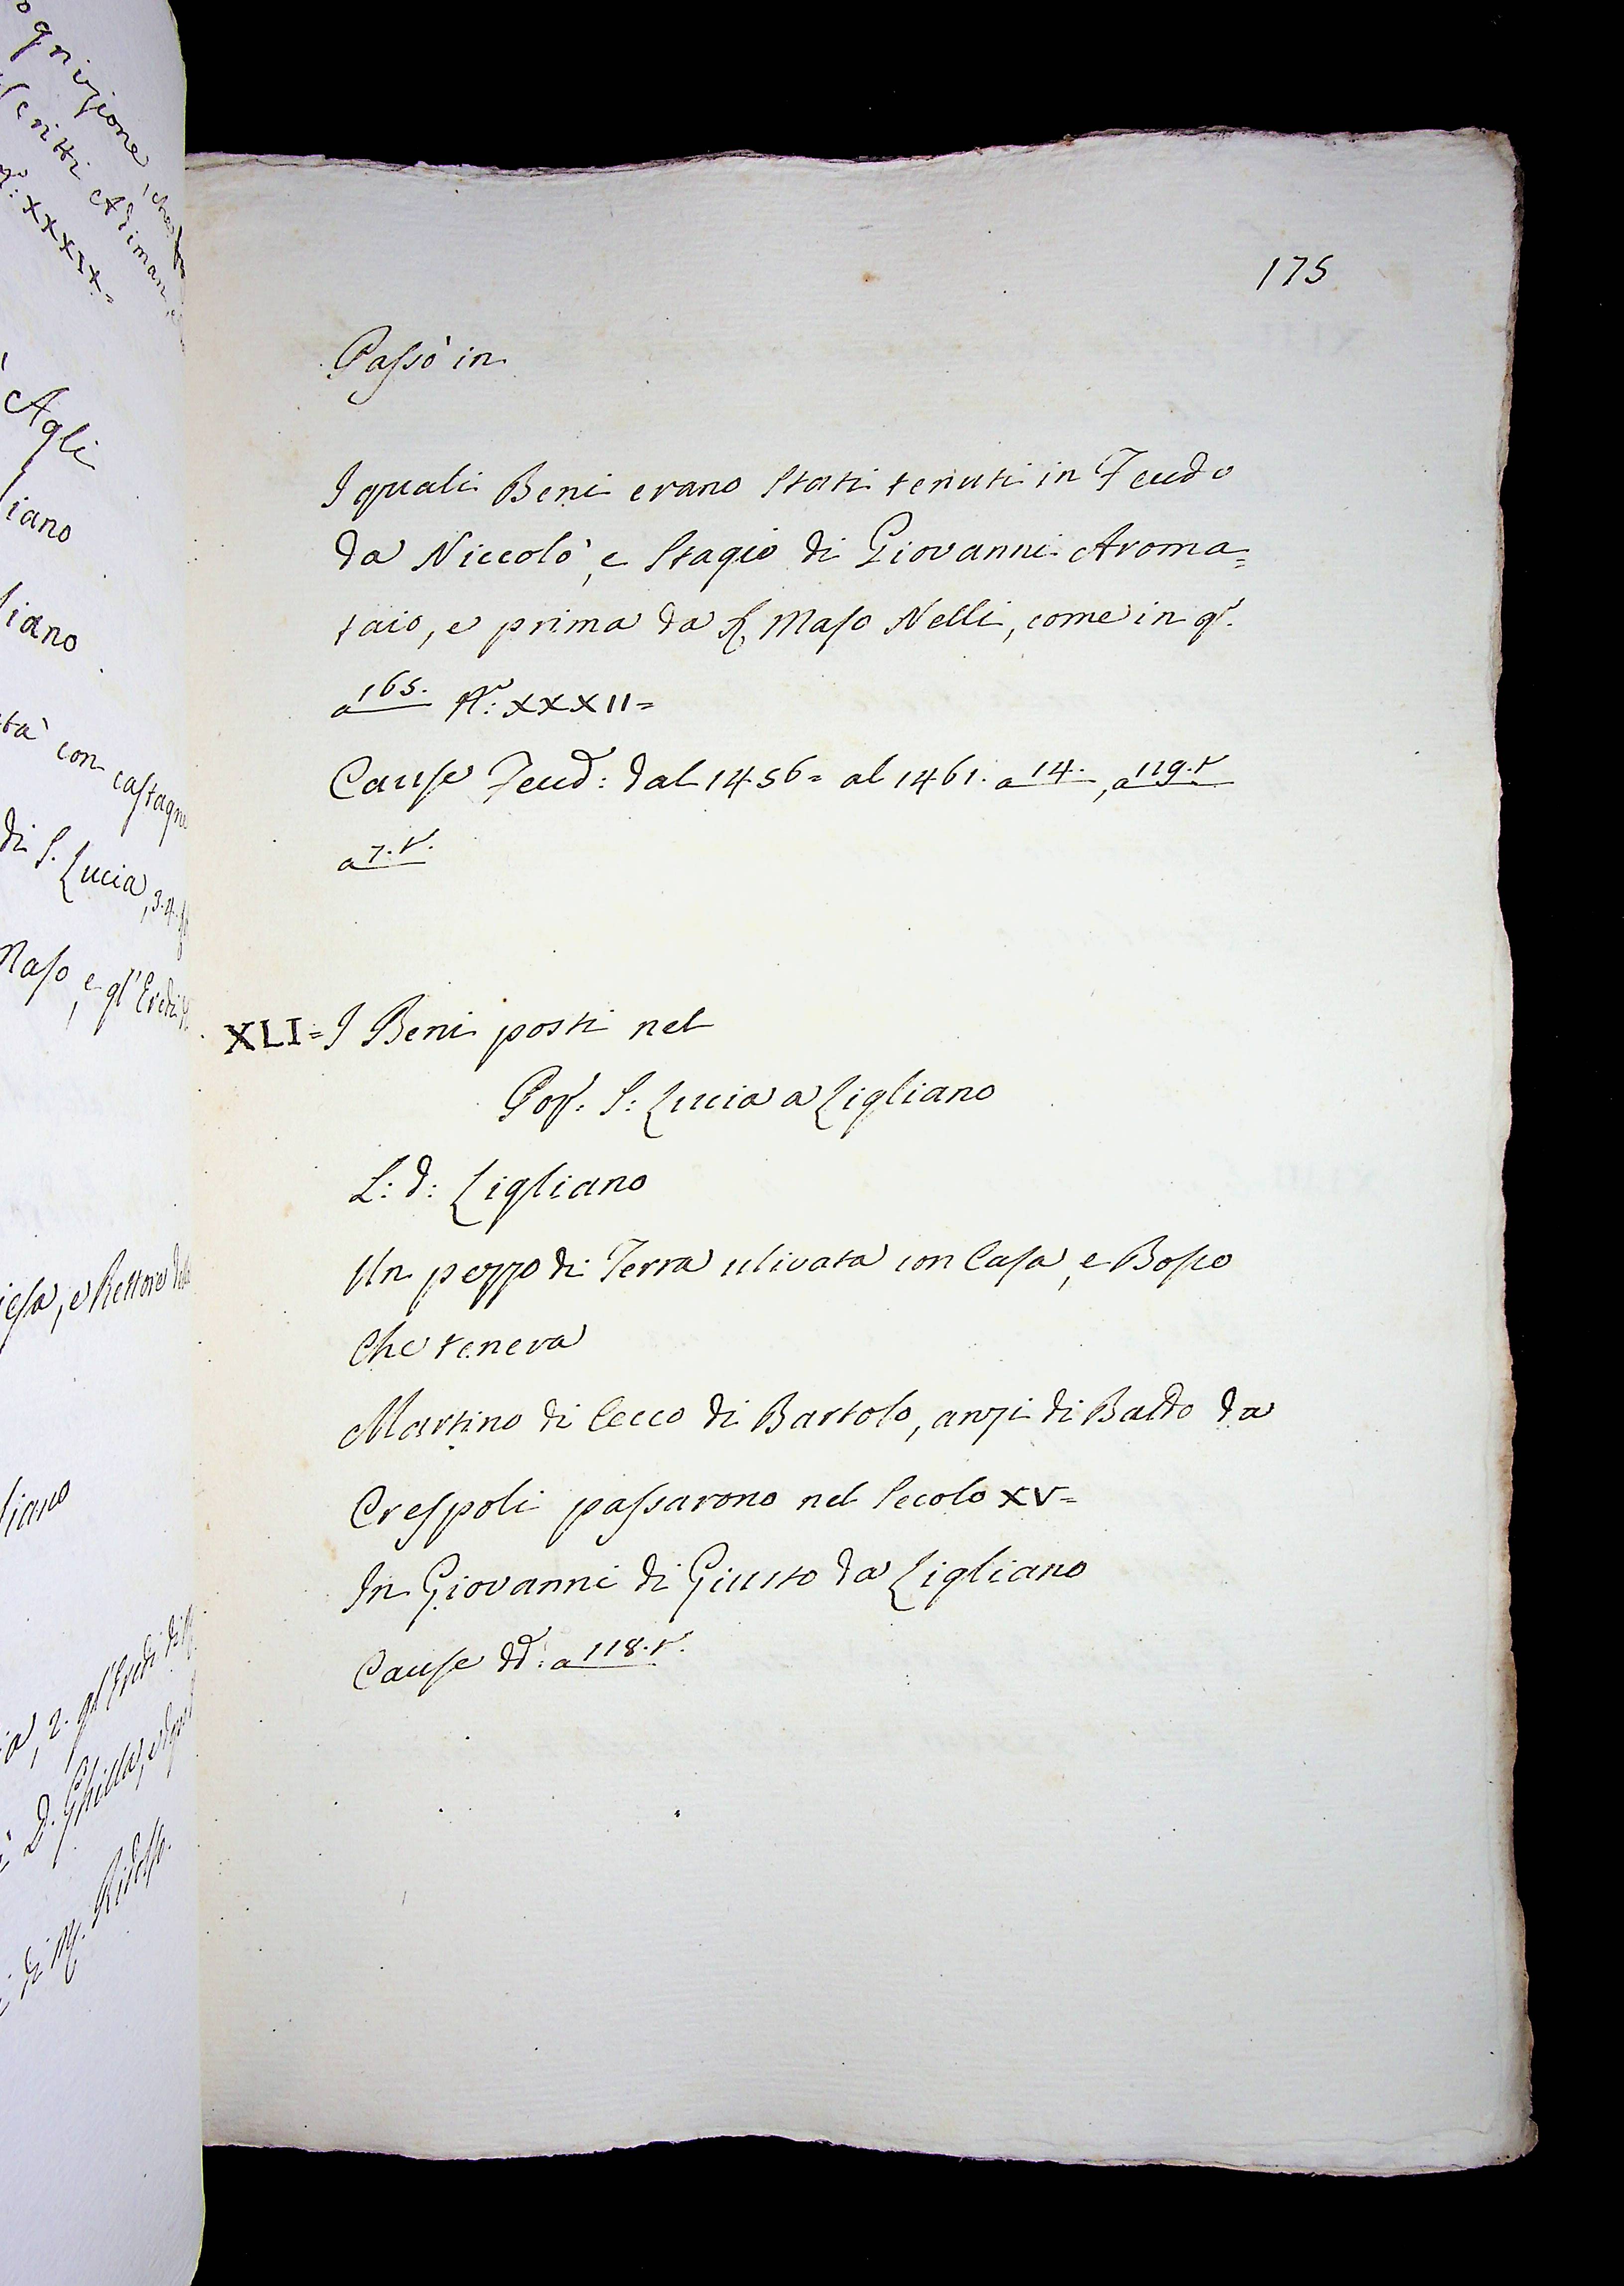 ognizione, che
scritti Adiman
N.º: XXXIX=
Agli
iano
liano
tà con castagni
di S. Lucia, 3. 4.
Maso, e gl'Eredi
iesa, e Rettore della
liano
ia, 2. gl'Eredi di
D. Ghilla, e
di M. Ridolfo.
175
Passò in
I quali Beni erano stati tenuti in Feudo
da Niccolò, e Stagio di Giovanni Aroma=
taio, e prima da S. Maso Nelli, come in q.º
a 165. N.º: XXXII=
Cause Feud: dal 1456= al 1461. a 14., a 119.t
a 7.t.
XLI= I Beni posti nel
Pop: S: Lucia a Ligliano
L: d: Ligliano
Un pezzo di Terra ulivata con Casa, e Bosco
Che teneva
Martino di Cecco di Bartolo, anzi di Baldo da
Crespoli passarono nel Secolo XV=
In Giovanni di Giusto da Ligliano
Cause dd: a 118.t.